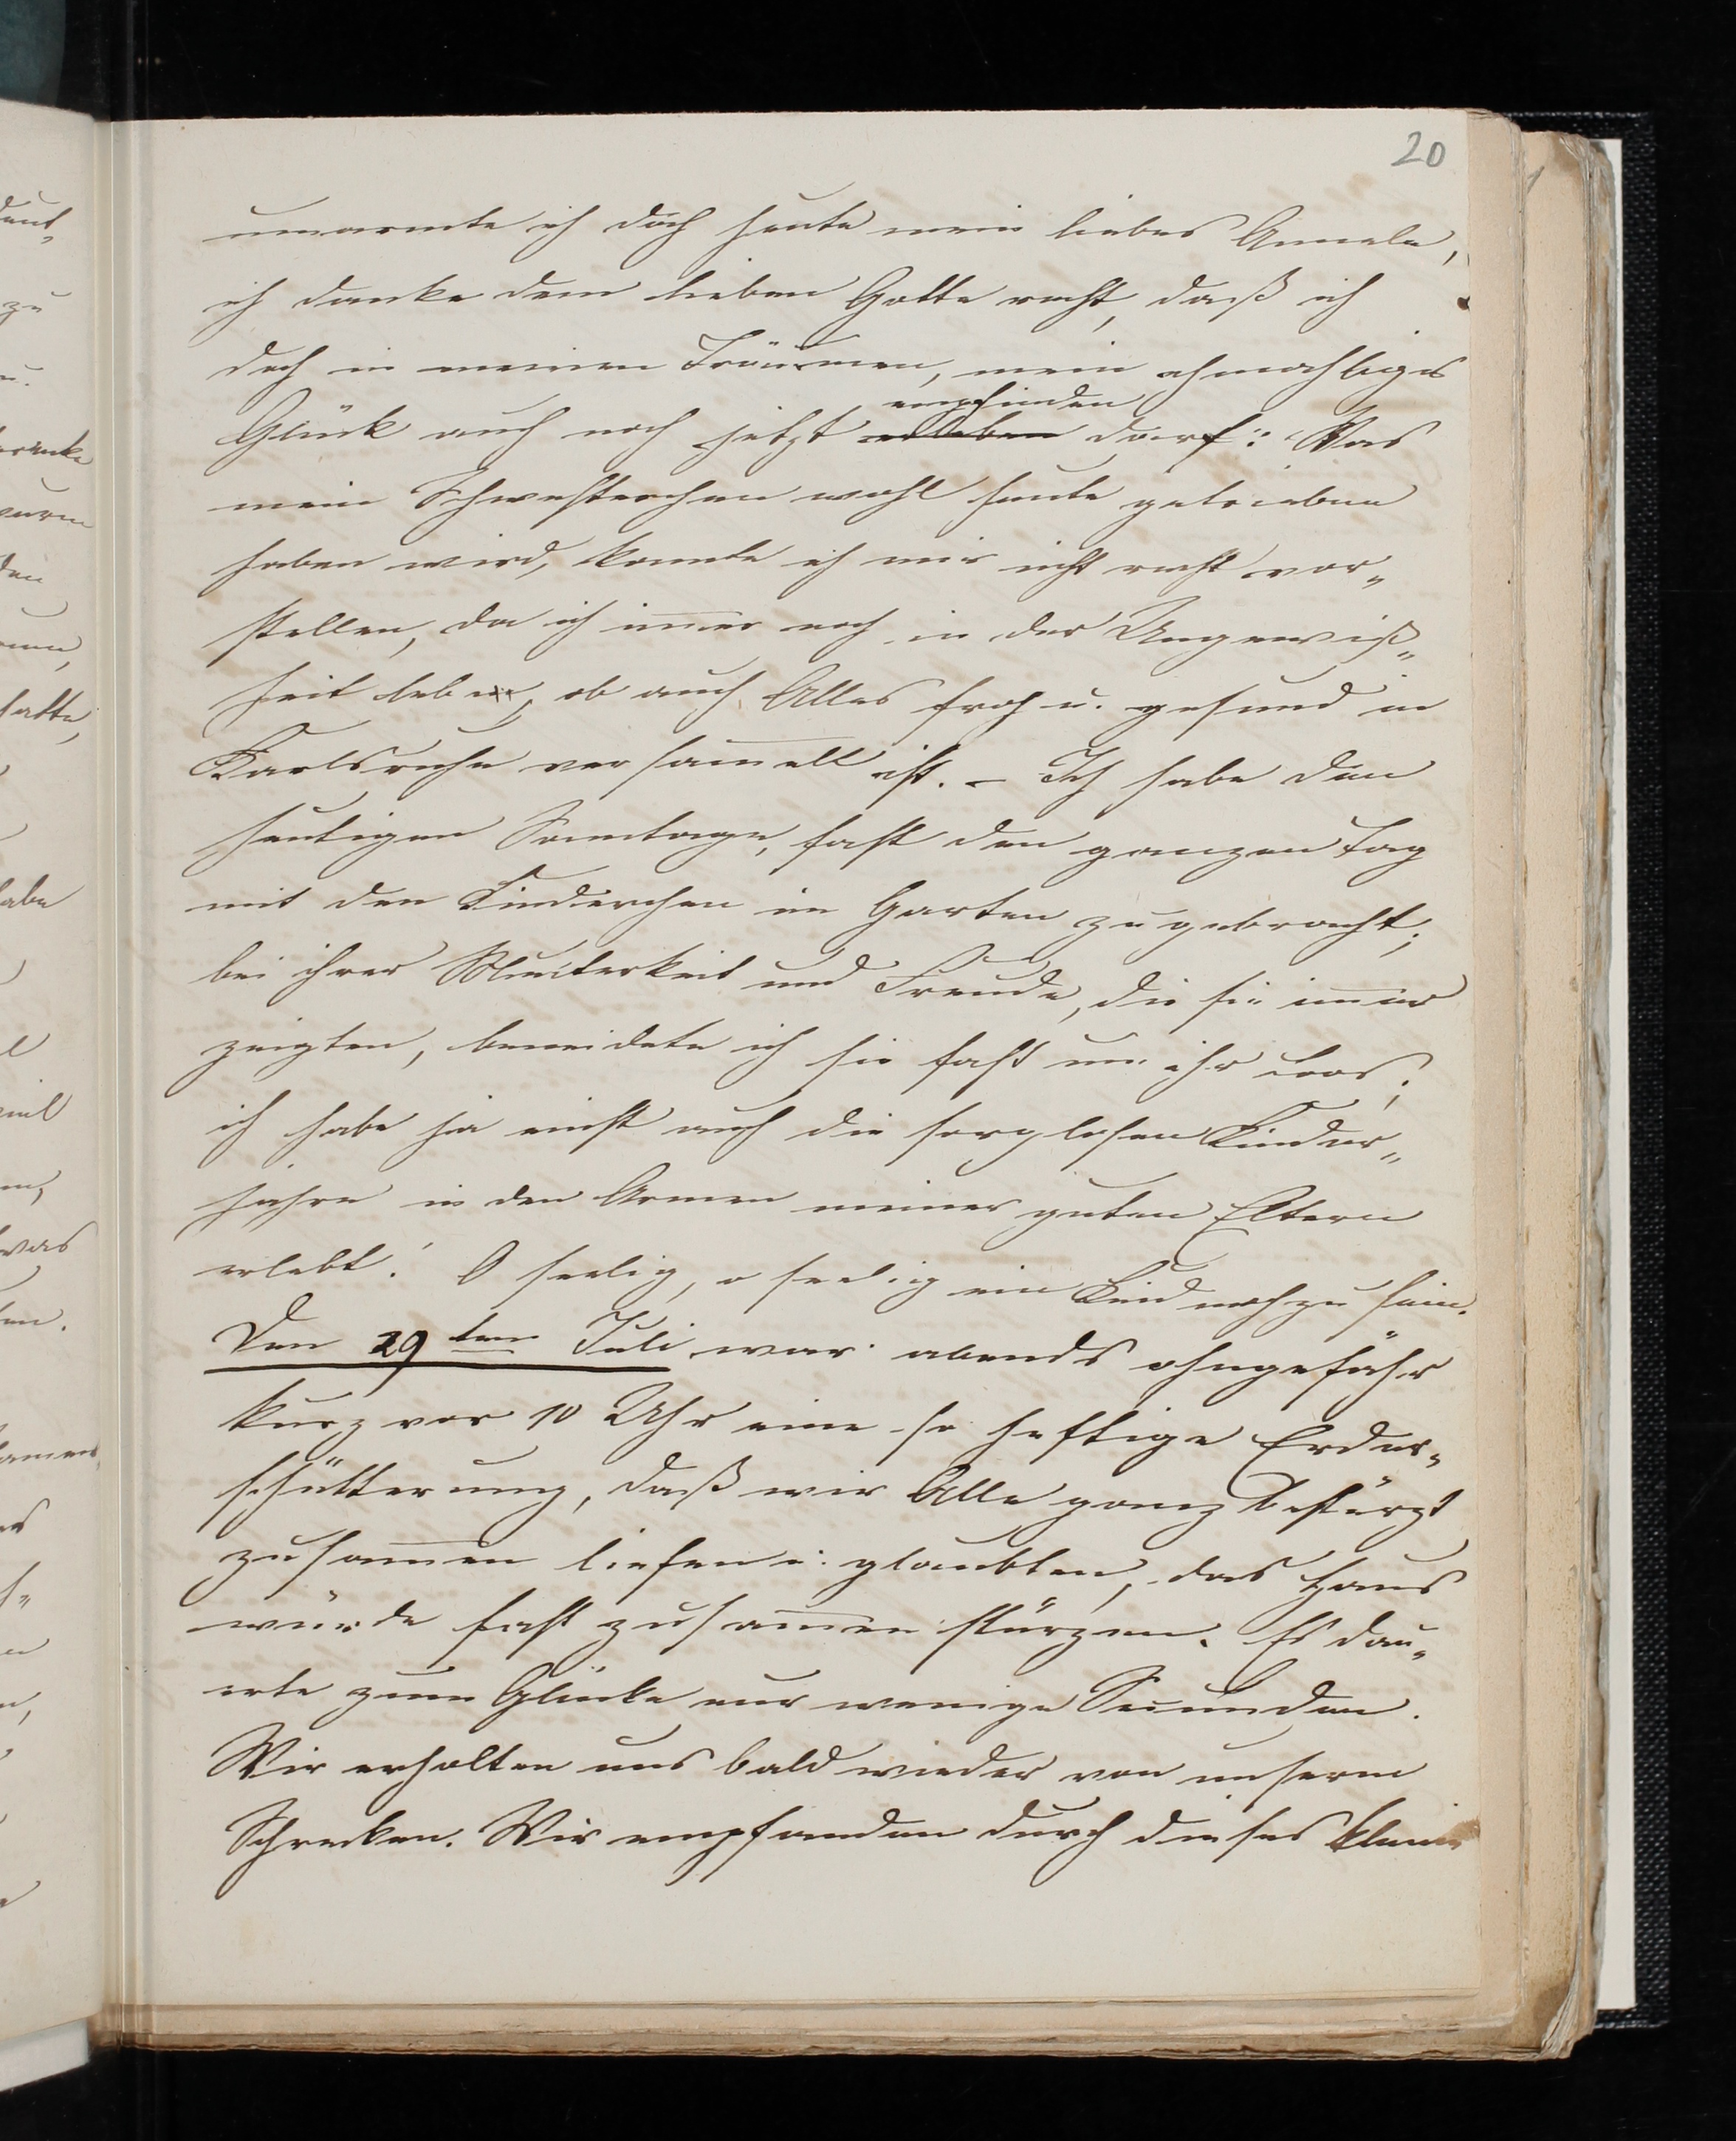 20
umarmte ich doch heute mein liebes Annele,
ich danke dem lieben Gotte recht, daß ich
doch in meinen Träumen, mein ehmahliges
empfinden
Glück auch noch jetzt erleben darf: Was
mein Schwesterchen wohl heute getrieben
haben wird, konnte ich mir nicht recht vor„
stellen, da ich immer noch in der Ungewiß„
heit lebe, ob auch Alles froh u. gesund in
Karlsruhe versammelt ist. – Ich habe den
heutigen Sonntage, fast den ganzen Tag
mit den Kinderchen im Garten zugebracht;
bei ihrer Munterkeit und Freude, die sie immer
zeigten, beneidete ich sie fast um ihr Loos;
ich habe ja einst auch die sorglosen Kinder„
jahre in den Armen meiner guten Eltern
erlebt! O seelig, o seelig ein Kind noch zu sein.
Den 29ten Juli war abends ohngefähr
kurz vor 10 Uhr eine so heftige Erder„
schütterung, daß wir Alle ganz bestürzt
zusammen liefen u. glaubten, das Haus
würde fast zusammen stürzen. Es dau„
erte zum Glücke nur wenige Secunden.
Wir erholten uns bald wieder von unserm
Schrecken. Wir empfanden durch dieses kleine